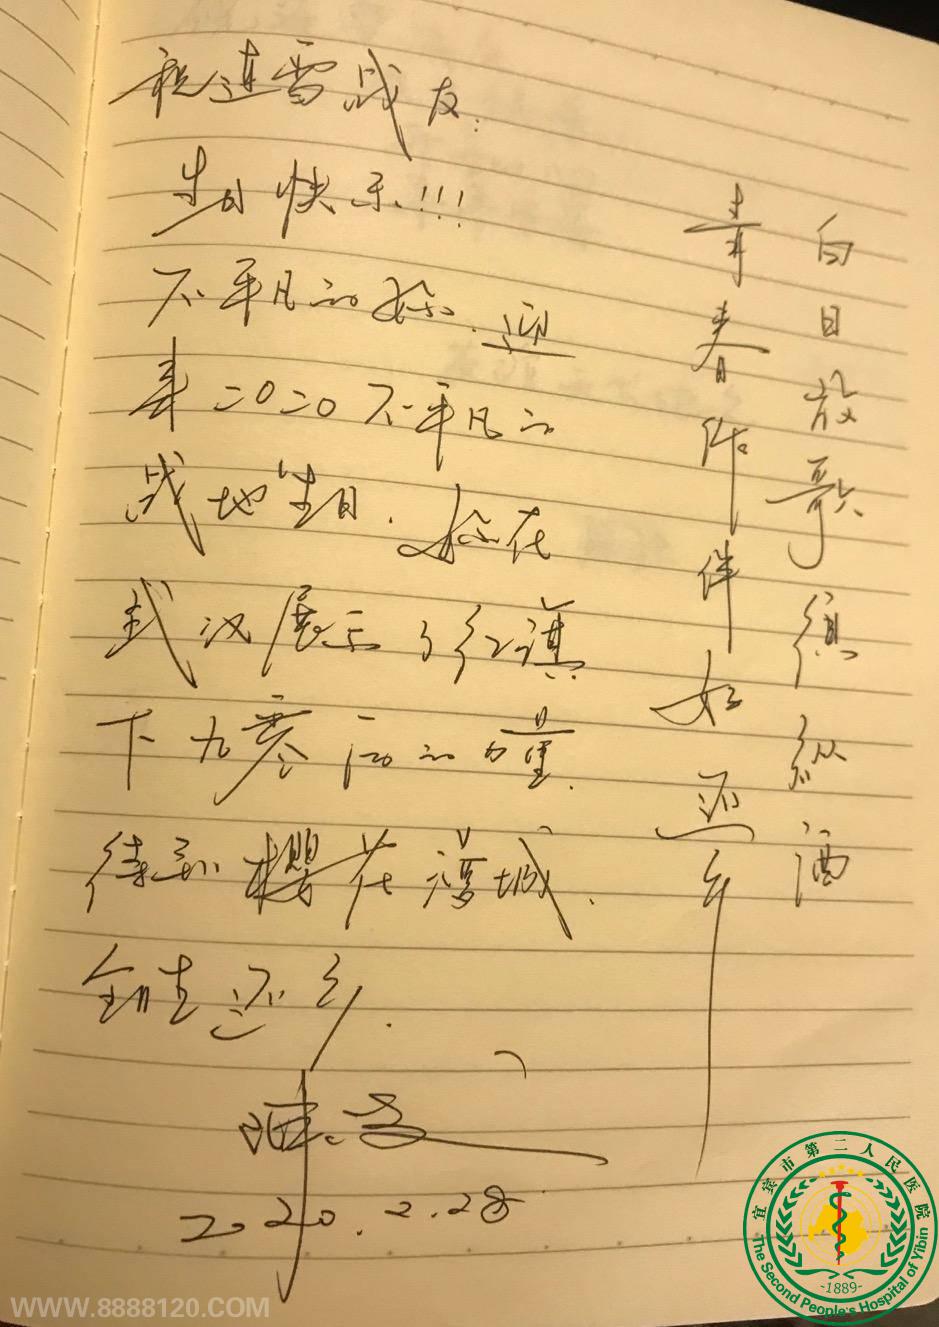 祝连雪战友:
生日快乐!!!
不平凡的你.迎
来二0二0不平凡的
战地生日.你在
武汉展示了红旗
下九零后的力量.
待到樱花满城.
生还乡.
2020.2.28
白日放歌须纵酒
青春作伴好还乡
宜宾市第二人民医院
The Second People's Hospital of Yibin
-1889-
WWW.8888120.COM